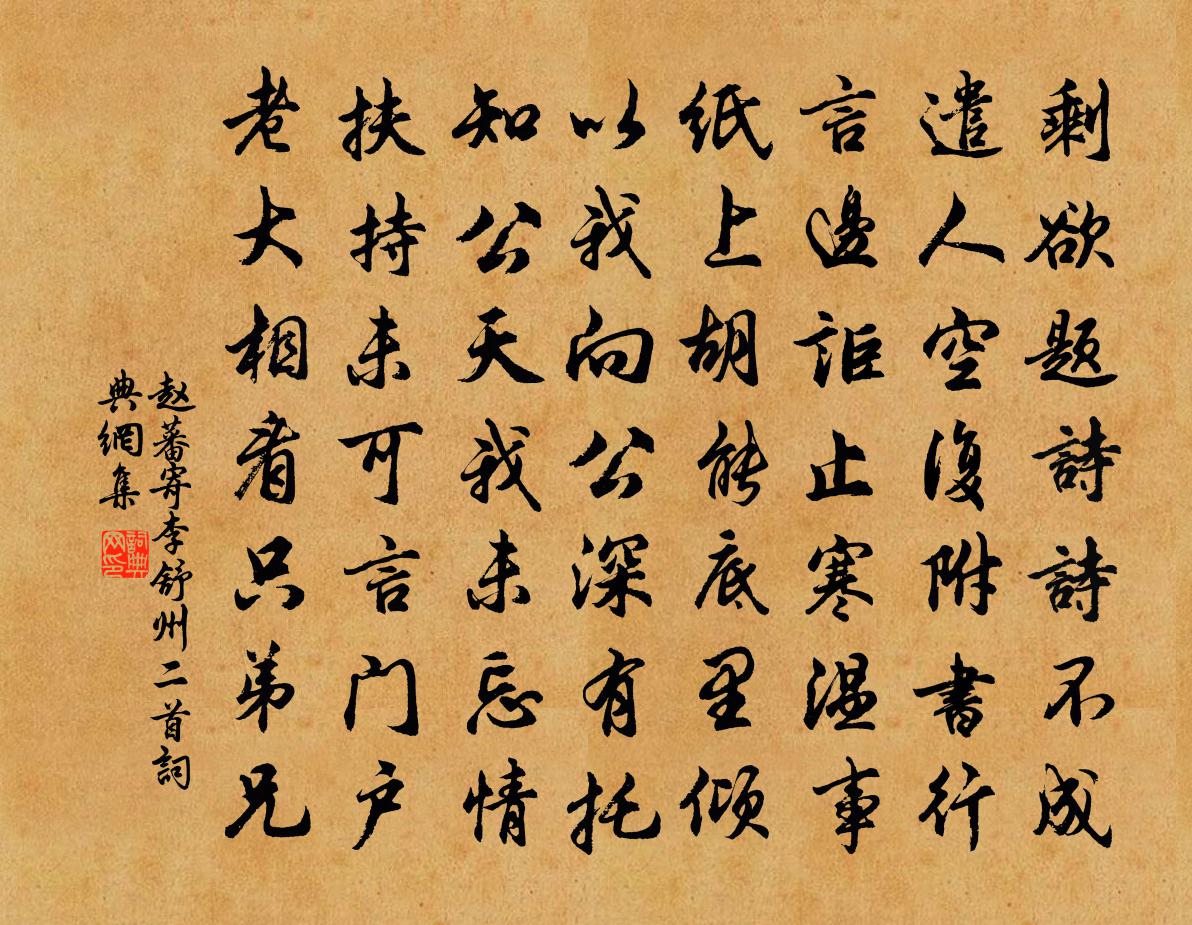 剩欲題詩詩不成
遣人空復附書行
言邊詎止寒溫事
紙上胡能底里傾
以我向公深有托
知公天我未忘情
扶持未可言门户
老大相看只弟兄
赵蕃寄李舒州二首詞
典網集
詞典网印